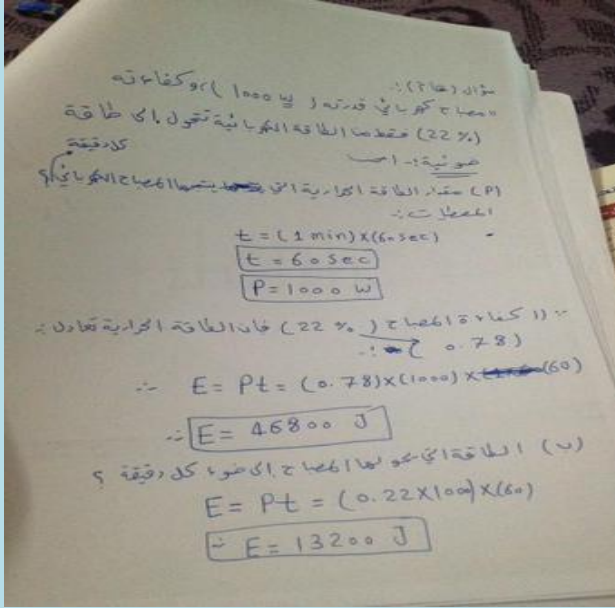 سؤال (هام):
مصباح كهربائي قدرته (1000 W) وكفاءته
(22 %) فقط من الطاقة الكهربائية تتحول إلى طاقة
ضوئية:- احسب
كل دقيقة
(P) مقدار الطاقة الحرارية التي يبثها المصباح الكهربائي؟
المعطيات:-
t = (1 min) X (60 sec)
t = 60 sec
P = 1000 W
∵ كفاءة المصباح (22 %) فان الطاقة الحرارية تعادل:
(0.78)
∴ E = Pt = (0.78)X(1000)X(60)
∴ E = 46800 J
(ب) الطاقة التي يحولها المصباح إلى ضوء كل دقيقة؟
E = Pt = (0.22X100)X(60)
∴ E = 13200 J